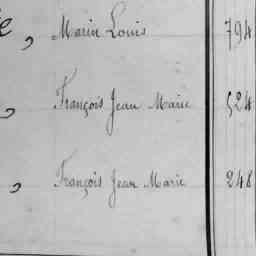 e, Marin Louis 794
, François Jean Marie 524
, François Jean Marie 248